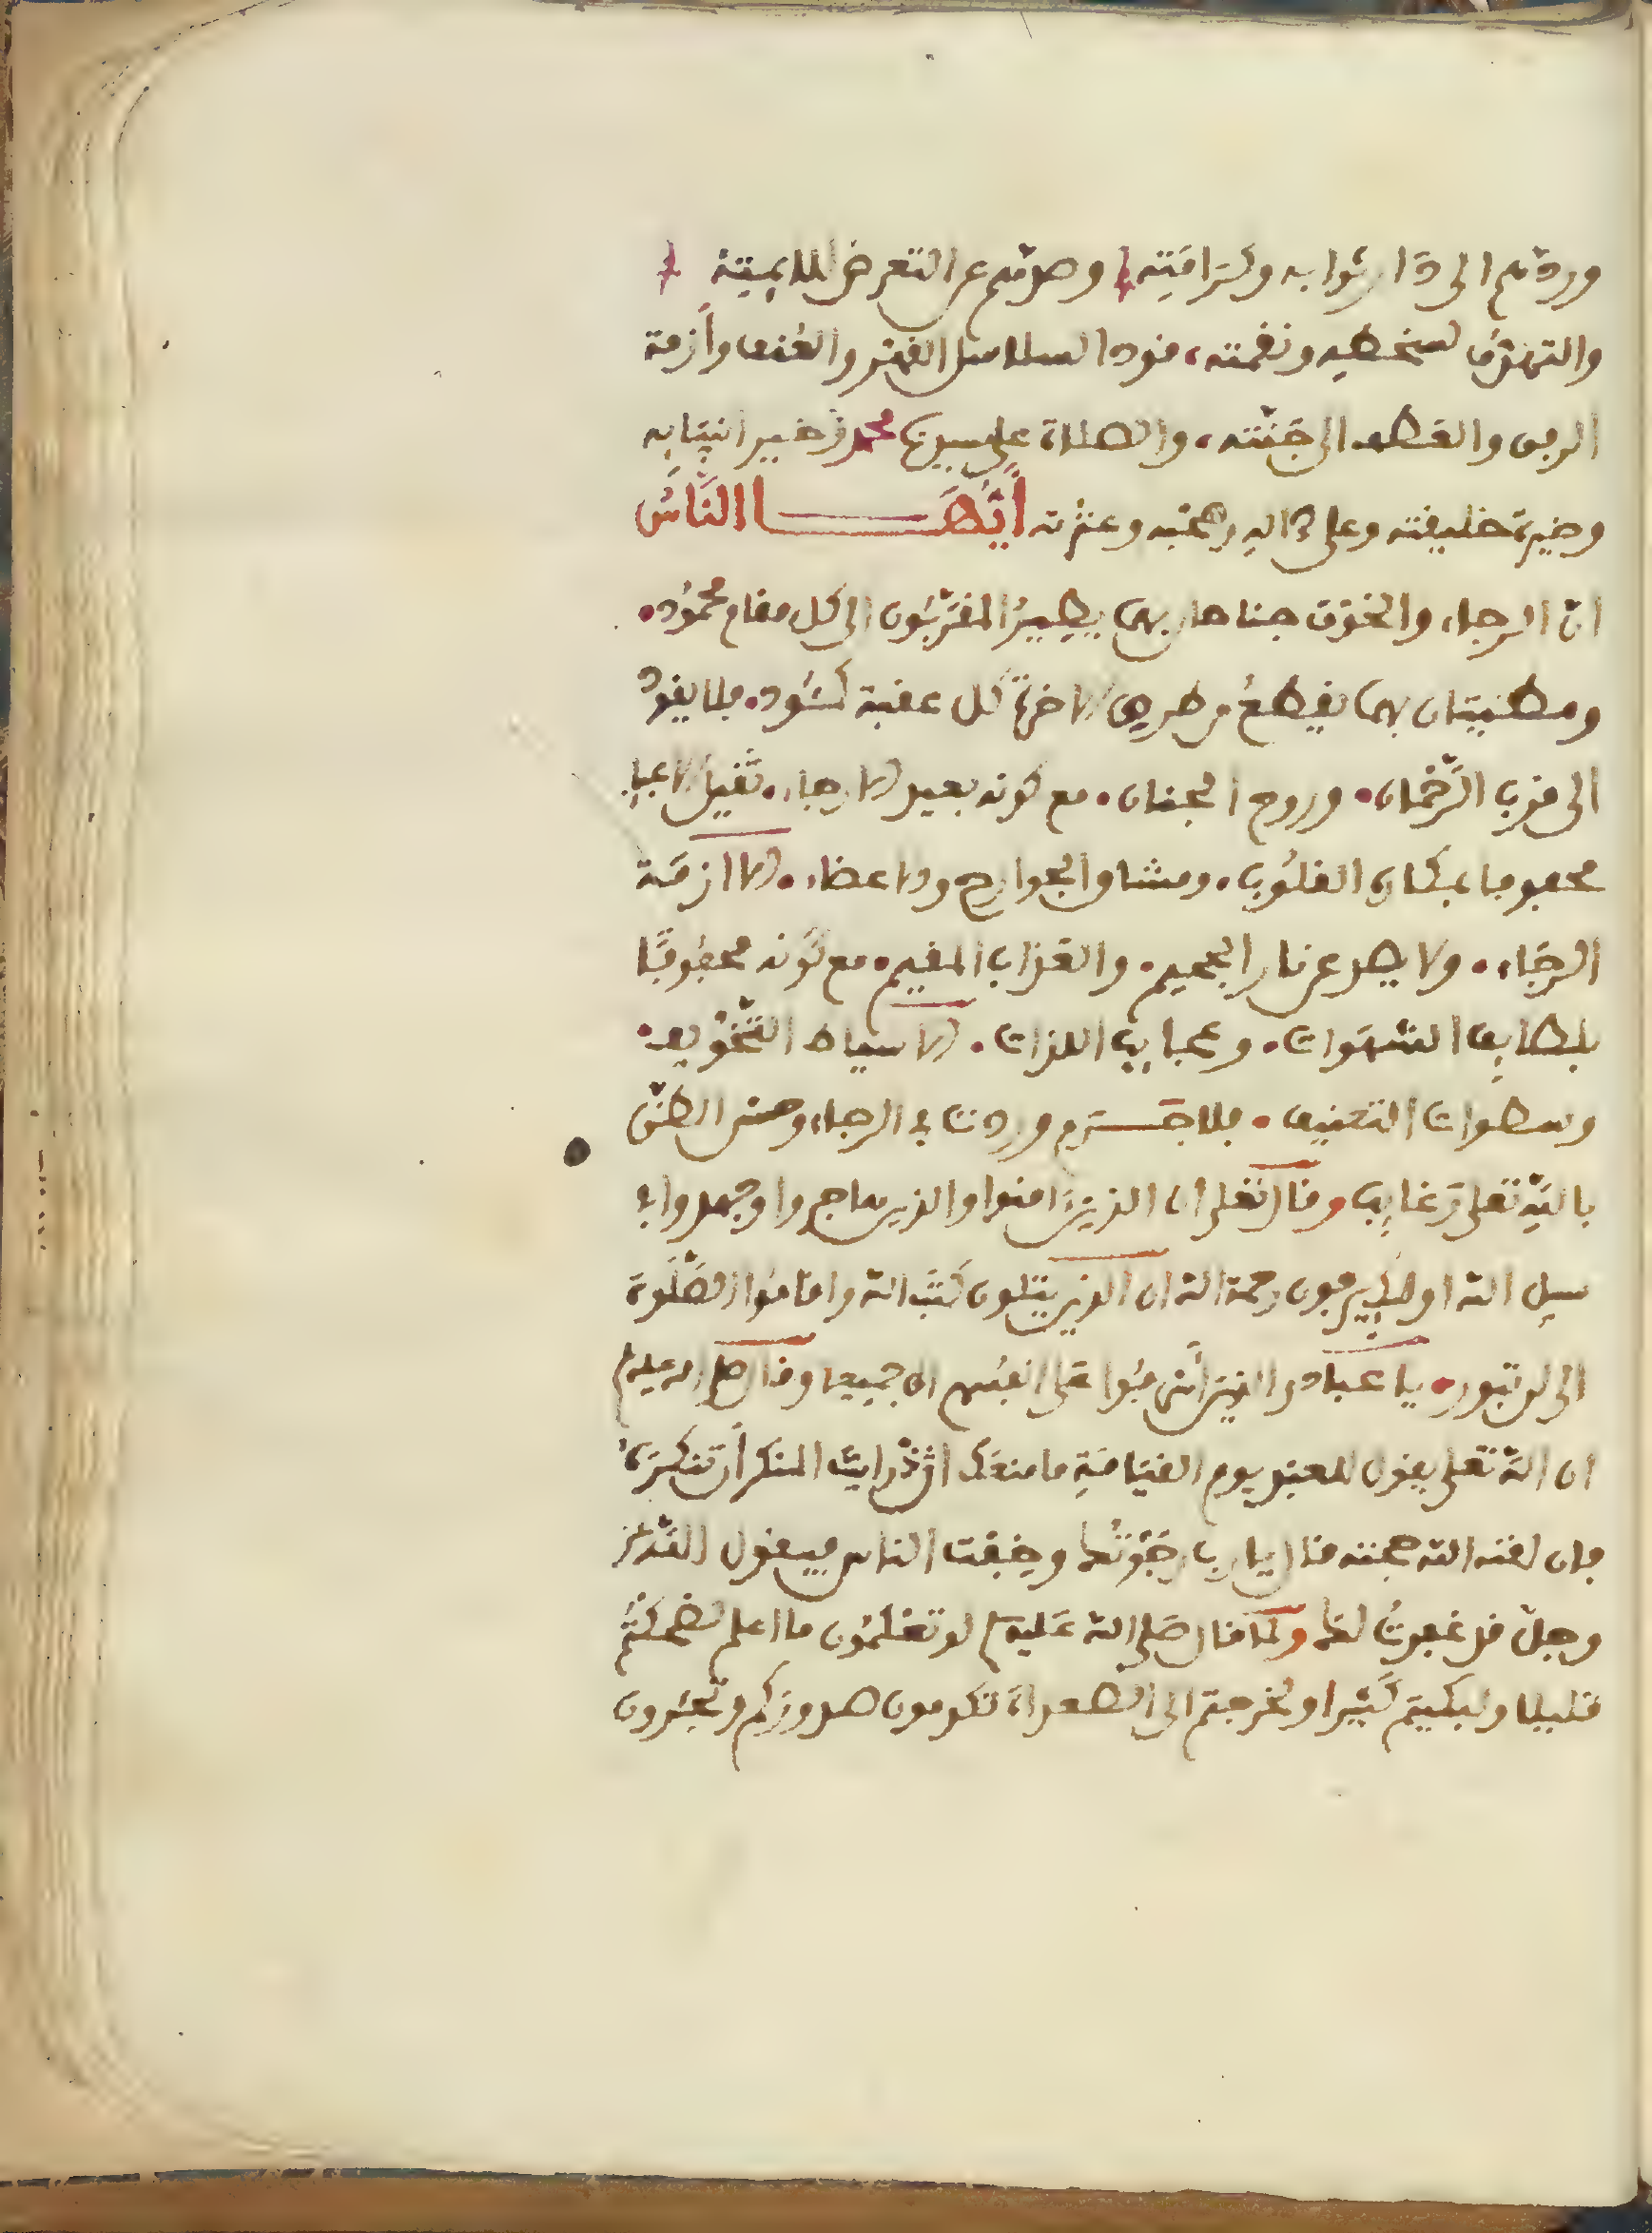 وردّهم الى دَار ثوابه وكرَامَتِه وصدّهم عن التعرض لِلَايمَتِهِ
والتهدّف لسخطه ونقمته، قودا بسلاسل القهر والعُنف وأزمة
الرفق واللطف الى جَنّته، والصلاة على سيدنا محمد خير انبيَايه
وخيرة خليقته وعلى ءاله وصحبه وعترته أَيُّهَـــا النَّاسُ
انّ الرجاء والخوف جناحان بهما يطِيرُ المقرّبُون الى كل مقام محمُود.
ومطيتان بهما يقطعُ من طريق الاخرة كل عقبة كئود. فلا يقودُ
الى قرب الرَّحْمان. وروح الجنان. مع كونه بعيد الارجاء. ثقيل الاعباء
محفوفا بمكاره القلُوب. ومشاق الجوارح والاعضاء. الا ازمّة
الرجَاء. ولا يصد عن نار الجحيم. والعَذاب المقيم. مع كَونه محفُوفًا
بلطايف الشهَوات. وعجايب اللذات. الا سياط التَّخْويف.
وسطوات التعنيف. فلا جَـرم وردت في الرجاء وحسن الظنّ
باللهِ تعلى رَغايب وقال تعلى ان الذينَ امنوا والذين هاجروا وجهدوا في
سبيل الله اولئك يرجون رحمة الله ان الذين يتلون كتَب الله واقامُوا الصَّلَوة
الى لن تبور. يا عبادي الذينَ أسرفُوا عَلى انفُسهم الى جميعا وقال صلى الله عليه وسلم
ان اللهَ تعلى يقول للعبد يوم القيَامَةِ ما منعَك اذْ رايت المنكر أن تنكرَهُ
فان لقنه الله حجته قال يا رب رجَوْتُك وخِفْت الناس فيقول اللّه عز
وجلّ قد غفرتُ لك وكما قال صَلى الله عَليه وسلم لو تعْلمُون ما اعلم لضحكتُم
قليلا ولبكيتم كَثيرا ولخرجتم الى الصعداة تلدمون صدوركم وتجئرون